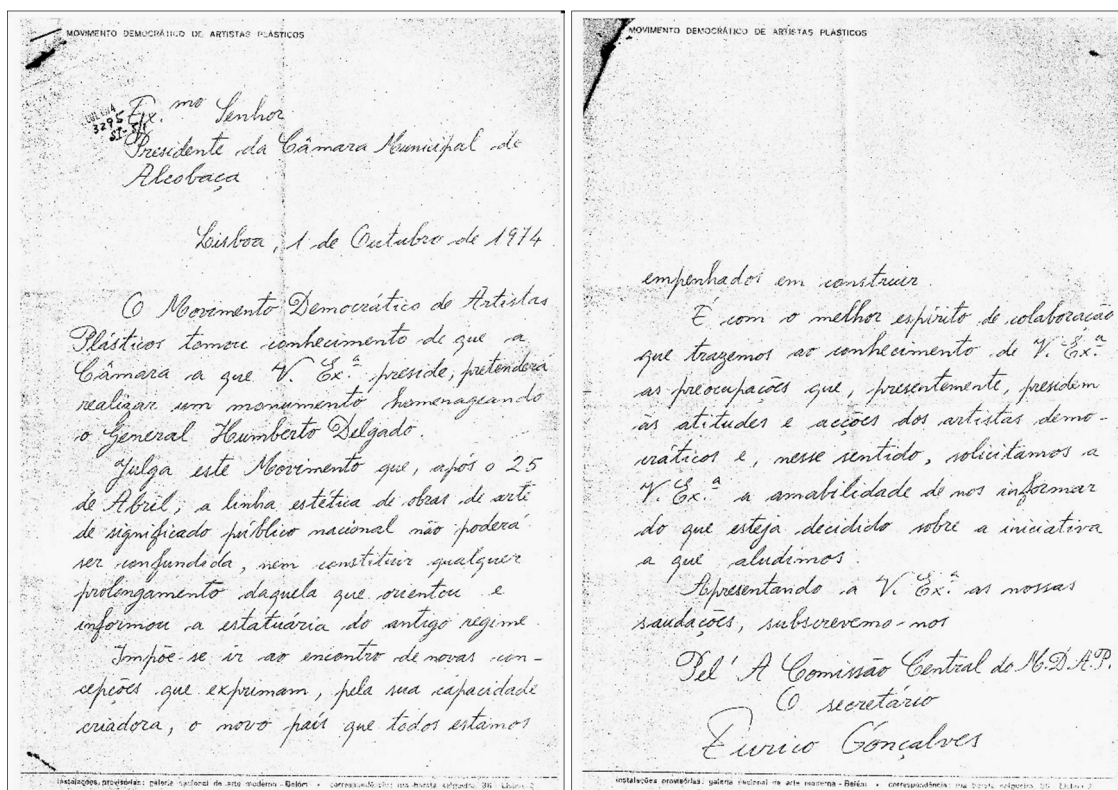 MOVIMENTO DEMOCRÁTICO DE ARTISTAS PLÁSTICOS
Ex.mo Senhor
3295
Presidente da Câmara Municipal de
Alcobaça
Lisboa, 1 de Outubro de 1974
O Movimento Democrático de Artistas
Plásticos tomou conhecimento de que a
Câmara a que V. Ex.ª preside, pretenderá
realizar um monumento homenageando
o General Humberto Delgado.
Julga este Movimento que, após o 25
de Abril, a linha estética de obras de arte
de significado público nacional não poderá
ser confundida, nem constituir qualquer
prolongamento daquela que orientou e
informou a estatuária do antigo regime
Impõe-se ir ao encontro de novas con-
cepções que exprimam, pela sua capacidade
criadora, o novo país que todos estamos
instalações provisórias: galeria nacional de arte moderna - Belém • correspondência: rua barata salgueiro, 36 - Lisboa 2
MOVIMENTO DEMOCRÁTICO DE ARTISTAS PLÁSTICOS
empenhados em construir.
É com o melhor espírito de colaboração
que trazemos ao conhecimento de V. Ex.ª
as preocupações que, presentemente, presidem
às atitudes e acções dos artistas demo-
cráticos e, nesse sentido, solicitamos a
V. Ex.ª a amabilidade de nos informar
do que esteja decidido sobre a iniciativa
a que aludimos.
Apresentando a V. Ex.ª as nossas
saudações, subscrevemo-nos
Pel' A Comissão Central do M.D.A.P.
O secretário
Eurico Gonçalves
instalações provisórias: galeria nacional de arte moderna - Belém • correspondência: rua barata salgueiro, 36 - Lisboa 2